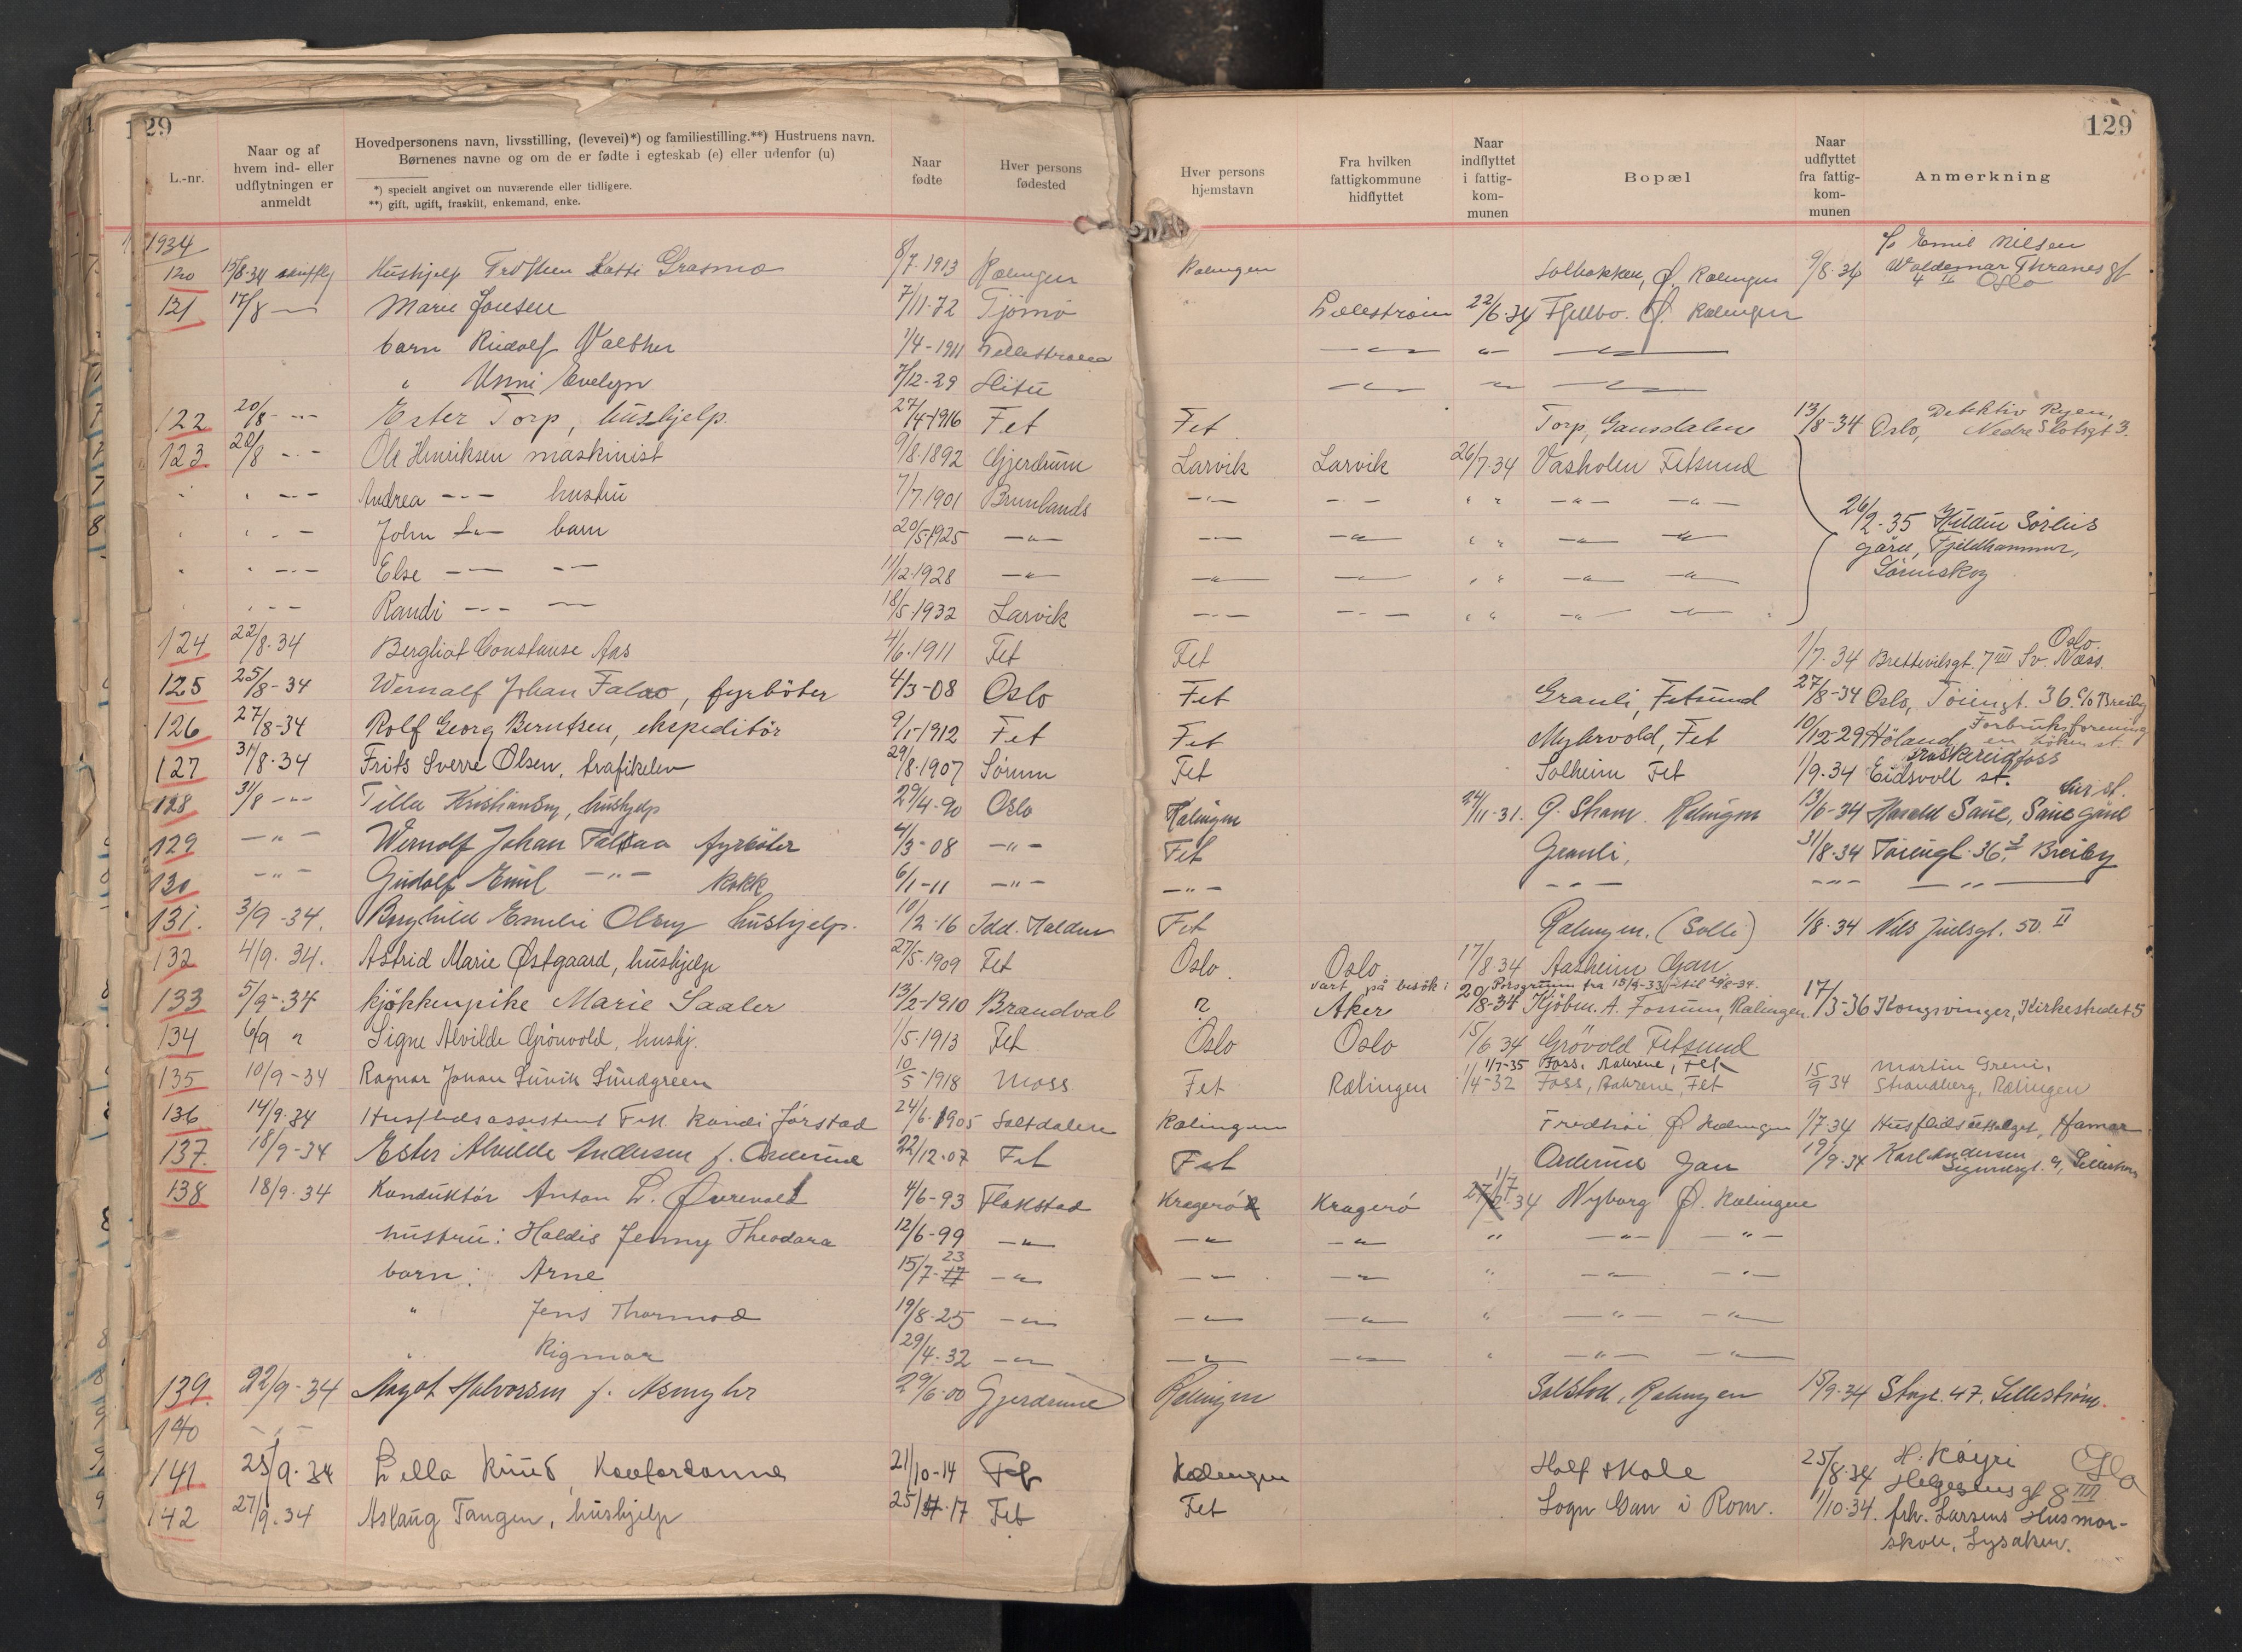 129
129
L.-nr.
Naar og af hvem ind- eller udflytningen er anmeldt
Hovedpersonens navn, livsstilling, (levevei)*) og familiestilling.**) Hustruens navn.
Børnenes navne og om de er fødte i egteskab (e) eller udenfor (u)
*) specielt angivet om nuværende eller tidligere.
**) gift, ugift, fraskilt, enkemand, enke.
Naar fødte
Hver persons fødested
Hver persons hjemstavn
Fra hvilken fattigkommune hidflyttet
Naar indflyttet i fattig-kom-munen
Bopæl
Naar udflyttet fra fattig-kom-munen
Anmerkning
1934
120 15/8-34 skriftlig Hushjelp Latti Grasmo 8/7-1913 Rælingen Rælingen Solbakken, Ø. Rælingen 9/8-34 c/o Emil Nilsen Waldemar Thranes gt 4 II Oslo
121 17/8 — Marie Jonsen 7/11-72 Tjømø Lillestrøm 22/6-34 Fjellbo. Ø. Rælingen
barn Rudolf Walther 1/4-1911 Lillestrøm — " — " — " —
" Unni Evelyn 7/12-29 — " — " — " —
122 20/8 - - - Ester Torp, hushjelp. 27/4-1916 Fet Fet Torp, Gansdalen 13/8-34 Oslo, Detektiv Ryen, Nedre Slotsgt 3.
123 20/8 - - - Ole Henriksen maskinist 9/8-1892 Gjerdrum Larvik Larvik 26/7-34 Vasholen Fetsund
Andrea - - - hustru 7/7-1901 Brunlands — " — — " — " " — " — — " —
John - " - barn 20/5-1925 — " — — " — — " — " " — " — — " —
Else — — 11/12-1928 — " — — " — — " — " " — " — — " —
Randi - - - — 18/5-1932 Larvik — " — — " — " " — " — — " —
26/2-35 Sørlis gård, Fjeldhammer, Lørenskog
124 22/8-34 Bergliot Constanse Aas 4/6-1911 Fet Fet 1/7-34 Brettevilsgt. 7 III Sv. Næss. Oslo.
125 25/8-34 Wernalf Johan Falao, fyrbøter 4/3-08 Oslo Fet Granli, Fetsund 27/8-34 Oslo, Tøiengt. 36 c/o Breiby
126 27/8-34 Rolf Georg Berntsen, ekspeditør 9/1-1912 Fet Fet Myhrvold, Fet 10/12-29 Høland Forbruksforening
127 31/8-34 Frits Sverre Olsen, trafikelev 29/8-1907 Sørum Fet Solheim Fet 1/9-34 Eidsvoll st.
128 31/8 - - Tilla Kristiansen, hushjelp 29/4-90 Oslo Rælingen 24/11-31. Ø. Rælingen 13/6-34 Harald Saue, Saue gård
129 — " — Wernolf Johan Falkaa fyrbøter 4/3-08 — " — Fet Granli, 31/8-34 Tøiengt. 36 3 Breiby
130 — " — Gudolf Emil — " — kokk 6/1-11 — " — — " — — " — — " — — " —
131. 3/9-34. Borghild Emelie Olsen hushjelp. 10/2-16 Idd. Halden Fet Rælingen. (Solli) 1/8-34 Nils Juelsgt. 50. II
132 4/9. 34. Astrid Marie Østgaard, hushjelp 27/5-1909 Fet Oslo. Oslo 17/8 34 Aasheim Gan.
vært på besøk i Porsgrunn fra 15/9-33 til 20/8-34.
133 5/9-34 kjøkkenpike Marie Saaler 13/2-1910 Brandval ? Aker 20/8-34 Kjøbm. A. Fossum, Rælingen 17/3-36 Kongsvinger, Kirkestredet 5
134 6/9 " Signe Alvilde Grönvold, hushj. 1/5-1913 Fet Oslo Oslo 15/6 34 Grövold Fetsund
135 10/9-34 Ragnar Johan Ludvik Lundgreen 10/5-1918 Moss Fet Rælingen 1/4-32 Foss, Fet 15/9 34 Martin Greni, Strandberg, Rælingen
1/7-35 Foss, Fet
136 14/9.34 Husflidsassistent Frk. Randi Jørstad 24/6-1905 Saltdalen Rælingen Fredhøi Ø. Rælingen 1/7-34 Husflidsutvalget, Hamar
137. 18/9-34 Ester Alvilde Andersen f. Orderud 22/12-07 Fet Fet Orderud Gan 19/9-34 Karl Andersen Sigurdsgt. 9, Lillestrøm
138 18/9-34 Konduktør Anton L. Øvrevoll 4/6-93 Flakstad Kragerø Kragerø 1/7 34 Nyborg Ø. Rælingen
hustru: Haldis Jenny Theodora 12/6-99 — " — — " — — " — " — " — — " —
barn: Arne 15/7-23 — " — — " — — " — " — " — — " —
" Jens Thormod 19/8-25 — " — — " — — " — " — " — — " —
" Rigmor 29/4-32 — " — — " — — " — " — " — — " —
139. 22/9-34 Magot Halvorsen f. Asmyhr 29/6-00 Gjerdrum Rælingen Solstad, Rælingen 15/9-34 Stogt. 47. Lillestrøm.
140 — " —
141 25/9-34 Lella Ruud 21/10-14 Fet Rælingen Holt skole 25/8-34 H. Køyri Helgesens gt 8 III Oslo
142 27/9.34 Aslaug Tangen, hushjelp 25/-17 Fet Fet Sogn Gan i Rom. 1/10-34. frk. Larsens Husmor-
skole, Lysaker.